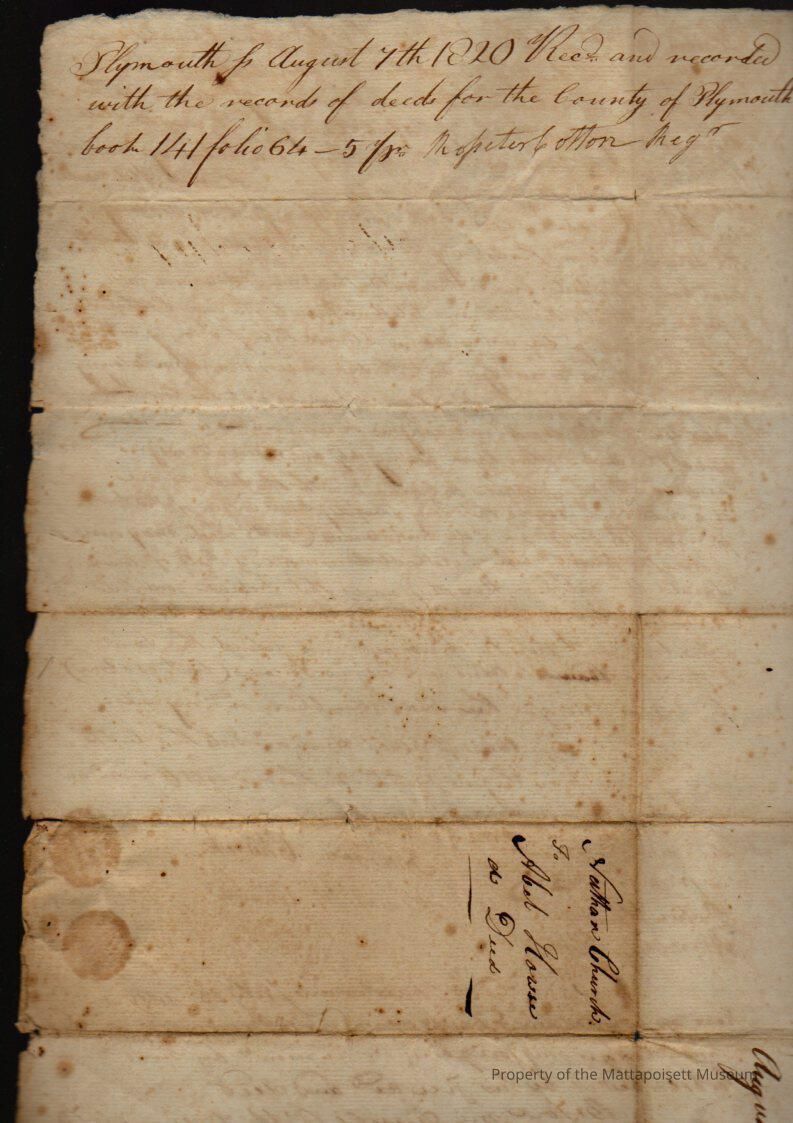 Plymouth ss August 7th 1820 Recd. and recorded
with the records of deeds for the County of Plymouth
book 141 folio 64 – 5 pr. Rossiter Cotton Regr
Nathan Church.
To
Abel House
a Deed
Augu
Property of the Mattapoisett Museum